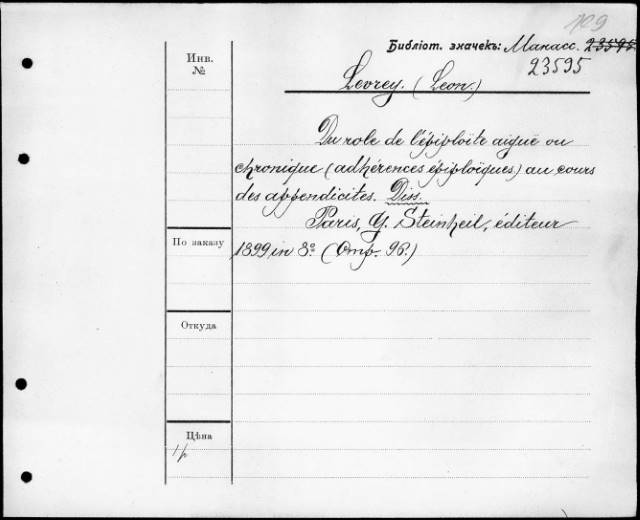 109
Библіот. значекъ: Манасс. 23595.
23595
Инв.
№
Levrey. (Leon.)
Du role de l'épiploïte aiguë ou
chronique (adhérences épiploïques) au cours
des appendicites. Diss.
Paris, G. Steinheil, éditeur
1899 in 8º (Стр. 96.)
По заказу
Откуда
Цѣна
1 р